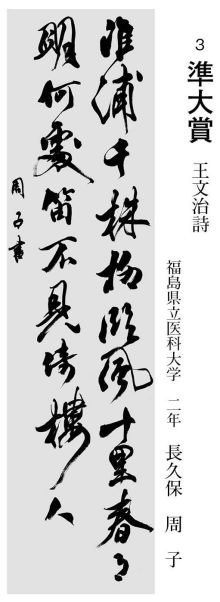 3 準大賞 王文治詩
福島県立医科大学 二年 長久保 周子
淮浦千株柳臨風十里春月
明何處笛不見倚樓人
周子書